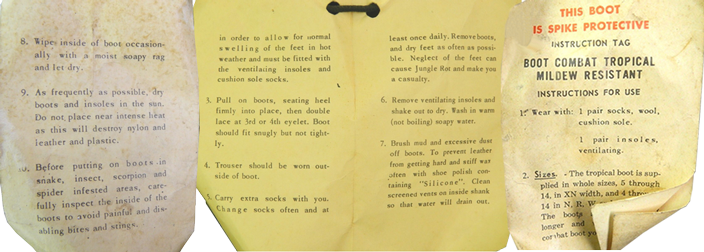 8. Wipe inside of boot occasion-
ally with a moist soapy rag
and let dry.
9. As frequently as possible, dry
boots and insoles in the sun.
Do not place near intense heat
as this will destroy nylon and
leather and plastic.
10. Before putting on boots in
snake, insect, scorpion and
spider infested areas, care-
fully inspect the inside of the
boots to avoid painful and dis-
abling bites and stings.
in order to allow for normal
swelling of the feet in hot
weather and must be fitted with
the ventilating insoles and
cushion sole socks.
3. Pull on boots, seating heel
firmly into place, then double
lace at 3rd or 4th eyelet. Boot
should fit snugly but not tight-
ly.
4. Trouser should be worn out-
side of boot.
5. Carry extra socks with you.
Change socks often and at
least once daily. Remove boots,
and dry feet as often as possi-
ble. Neglect of the feet can
cause Jungle Rot and make you
a casualty.
6. Remove ventilating insoles and
shake out to dry. Wash in warm
(not boiling) soapy water.
7. Brush mud and excessive dust
off boots. To prevent leather
from getting hard and stiff use
often with shoe polish con-
taining "Silicone". Clean
screened vents on inside shank
so that water will drain out.
THIS BOOT
IS SPIKE PROTECTIVE
INSTRUCTION TAG
BOOT COMBAT TROPICAL
MILDEW RESISTANT
INSTRUCTIONS FOR USE
1. Wear with: 1 pair socks, wool,
cushion sole.
1 pair insoles,
ventilating.
2. Sizes. - The tropical boot is sup-
plied in whole sizes, 5 through
14, in XN width, and 4
14 in N, R,
The boots
longer and
combat boot